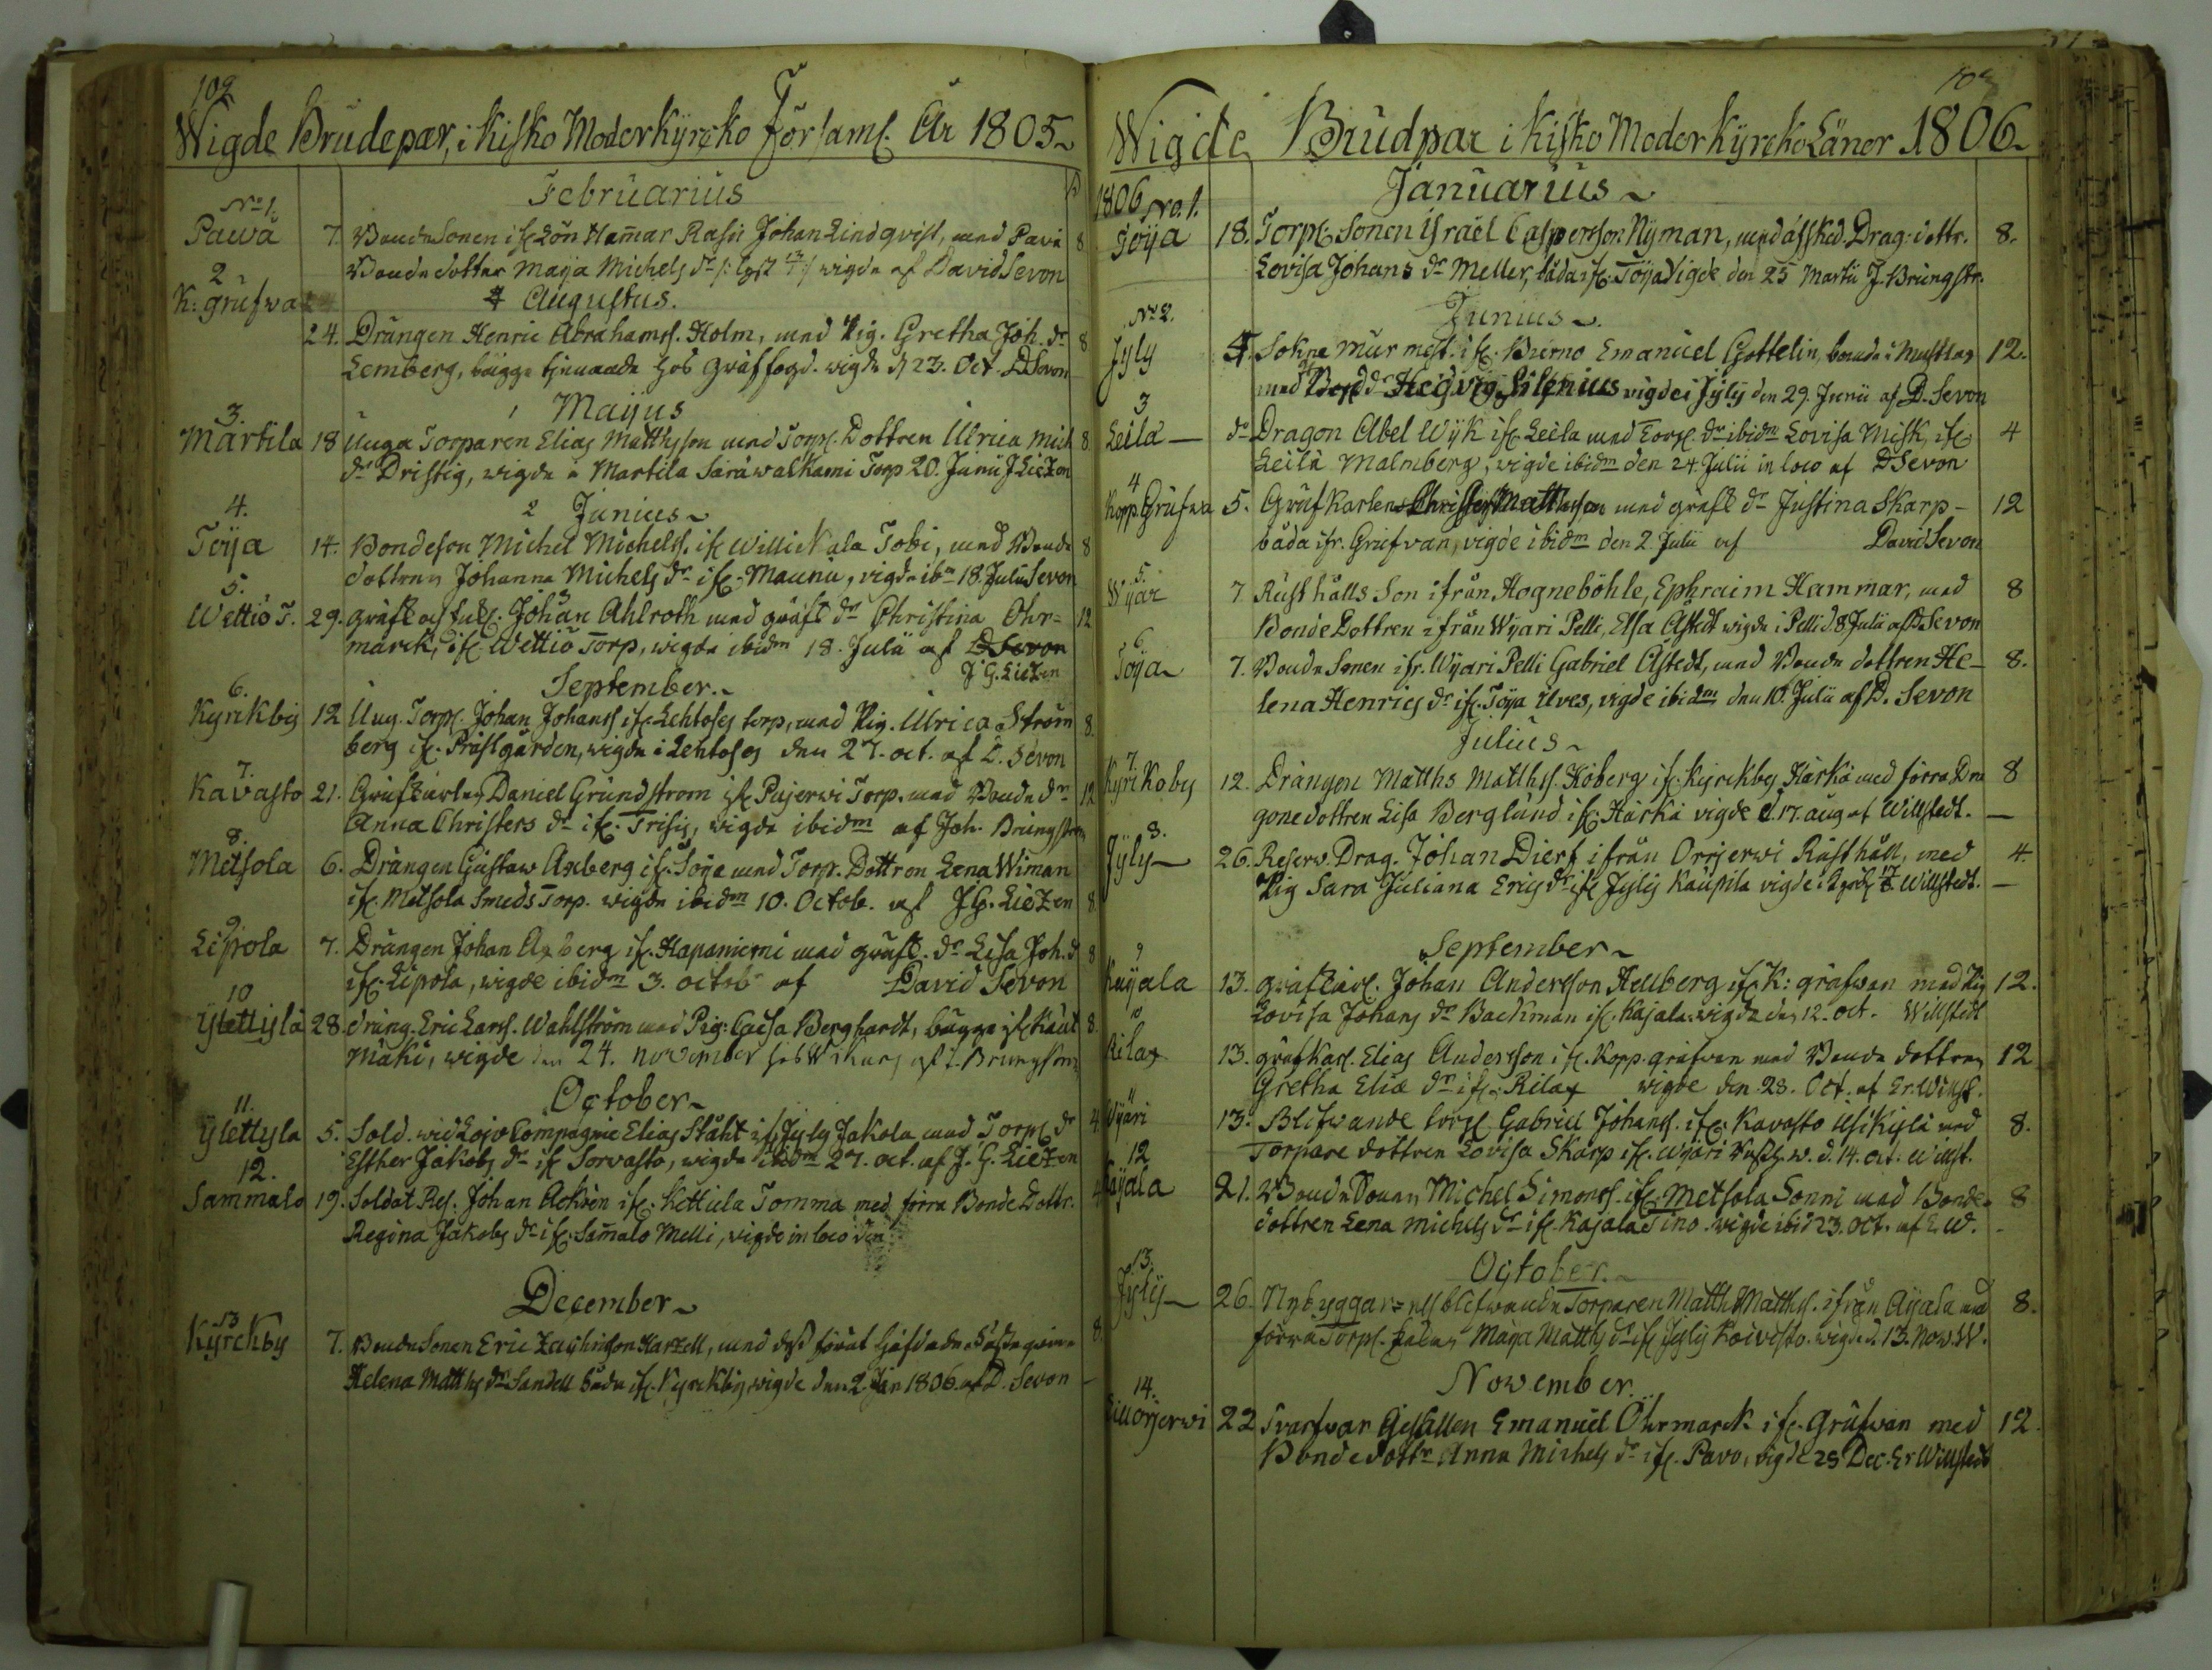 102
Wigde Brudepar, i Kisko Moderkyrcko Församl. År 1805
Februarius
No 1.
Pawä 7. Bondesonen ifr. Lön Hamar Rasu Johan Lindqvist, med Pavä 8
Bonde dotter Maija Michels dr wigde af David Sevon
2
K: grufwa Augustus.
24. Drängen Henric Abrahamss. Holm, med Pig. Gretha Joh. dr 8
Lemberg, bägge tjenande hos Gruffogd. wigde d 23. Oct. D Sevon
Maijus
3.
Martila 18 Unga Torparen Elias Matthsson med Torp. Dottren Ulrica Mich 8
dr Dristig, wigde i Martila Saräwalkami Torp 20. Junii J Liezen
4. Junius
Toija 14. Bondeson Michel Michelss. ifr Willickala Tobi, med Bonde 8
dottren Johanna Michels dr ifr. Maunu, vigde ibm 18. Julii Sevon
5.
Wettiö T. 29. Johan Ahlroth med gruft dr Christina Ohr- 12
marck, ifr. Wettiö Torp, wigde ibidm 18. Julii af D Sevon
J G. Liezen
September.
6.
Kyrckby 12 Ung. Torp. Johan Johanss ifr. Lehtoses torp, med Pig. Ulrica Ström 8.
berg ifr. Prästgården, wigde i Lehtoses den 27. oct. af D. Sevon
7.
Kavasto 21. Grufkarlen Daniel Grundstrom ifr Pujerwi Torp. med Bonde dr 12
Anna Christers dr ifr. Trisis, wigde ibidm af Joh. Brungstrom
8.
Metsola 6. Drängen Gustaw Axberg ifr. Toija med Torp. Dottren Lena Wiman
ifr. Metsola Smeds Torp. wigde ibidm 10. Octob. af JG. Liezen 8.
9
Lipola 7. Drängen Johan Axberg ifr. Hapaniemi med gruft. dr Lisa Joh. d 8
ifr. Lipola, wigde ibidm 3. octob af David Sevon
10
Ylettylä 28. dräng. Eric Larss. Wahlström med Pig: Caisa Berghardt, bägge ifr Kaut 8.
mäki, wigde den 24. november af J. Brungstrom
October
11.
Ylettyla 5. Sold. wid Lojo Compagnie Elias Ståhl ifr Jyly Jakola med Torp. dr 4
Esther Jakobs dr ifr Sorvasto, wigde ibidm 27. oct. af J. G. Liezen
12.
Sammalo 19. Soldat Res. Johan Ackrèn ifr. Kettula Tomma med förra Bonde Dottr. 4
Regina Jakobs dr ifr. Samalo Melli, vigde in loco den
December
13
Kyrckby 7. Bondesonen Eric Zachrisson Karzell, med 8
Helena Matths dr Sandell båda ifr. Kyrckby, wigde den 2. Jan 1806. af D. Sevon
103
Wigde Brudpar i Kisko Moderkyrcko Länor 1806.
1806 Januarius
No. 1.
Toija 18. Torp. Sonen Israel Caspersson Nyman, med afsked. Drag. dottr. 8.
Lovisa Johans dr Meller, båda ifr. Toija Vigde den 25 Martii J. Brungstr.
No 2. Junius.
Jyly 4. Sokne Mur mest. ifr. Bierno Emanuel Gottelin, boende i Mustlax 12.
med Bond dr Hedvig Silfvenius vigde i Jyly den 29. Junii af D. Sevon
3
Leilä dr Dragon Abel Wijk ifr. Leila med Torp. dr ibidm Lovisa Misk, ifr. 4
Leilä Malmberg, vigde ibidm den 24. Julii in loco af D Sevon
4
Kopp. Grufwa 5. Grufkarlen Christer Mattsson med gruft dr Justina Skarp 12
båda ifr. Grufvan, vigde ibidm den 2. Julii af David Sevon
5.
Wijar 7. Rusthålls Son ifrån Hogneböhle, Ephraim Hammar, med 8
Bonde Dottren ifrån Wijari Pelli, Elsa Åstedt vigde i Pelli d. 8. Julii af D. Sevon
6
Toija 7. Bonde Sonen ifr. Wijari Pelli Gabriel Åstedt, med Bonde dottren He- 8.
lena Henrics dr ifr. Toija Uves, vigde ibidm den 10. Julii af D. Sevon
Julius
7.
Kyrikoby 12. Drängen Matths Matthss. Köberg ifr. Kyrckby Härkä med förra Dra 8
gone dottren Lisa Berglund ifr. Härkä vigde d. 17. aug af Willstedt.
8.
Jyly 26. Reserv. Drag. Johan Dierf ifrån Orijerwi Rusthåll, med 4.
Pig Sara Juliana Erics dr ifr Jyly Kaupila vigde Willstedt.
September
9
Kajala 13. grufkarl. Johan Andersson Hellberg ifr. K: grufwan med Pig 12.
Lovisa Johans dr Backman ifr. Kajala. vigde den 12. oct. Willstedt
10
Rilax 13. grufkarl. Elias Andersson ifr. Kopp. grufwan med Bonde dottren 12
Gretha Eliæ dr ifr. Rilax wigde den 28. Oct. af Er. Willst.
11
Wijäri 13. Blifwande torp. Gabriel Johanss. ifr. Kavasto Usikylä med 8.
Torpare dottren Lovisa Skarp ifr. Wijäri w. d. 14. oct. Willst.
12
Kajala 21. Bonde Sonen Michel Simonss. ifr. Metsola Sonni med Bonde 8
dottren Lena Michels dr ifr. Kajala Tino. vigde ibid 23. oct. af E. W.
October.
13.
Jyly 26. Nybyggar- och blefwande Torparen Matth. Matthss. ifrån Aijala med 8.
förra Torp. Maija Matths dr ifr Jyly Koivisto. wigde d. 13. Now. W.
November.
14.
Lillorjerwi 22 Svarfwar Gesällen Emanuel Öhrmarck ifr. Grufwan med 12.
Bonde dottr Anna Michels dr ifr. Pavo, vigde 25 Dec. Er Willstedt